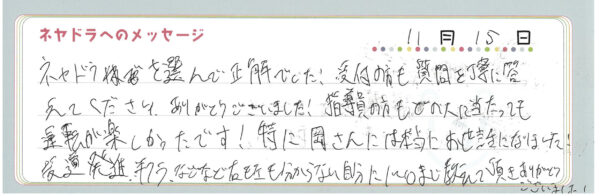 ネヤドラへのメッセージ
11月15日
ネヤドラ様を選んで正解でした！受付の方も質問を丁寧に答
えてくださり、ありがとうございました！指導員の方もどの人に当たっても
運転が楽しかったです！特に岡さんには本当にお世話になりました！
後退発進、ギア、などなど右も左も分からない自分に1〜10まで教えて頂きありがとう
ございました！